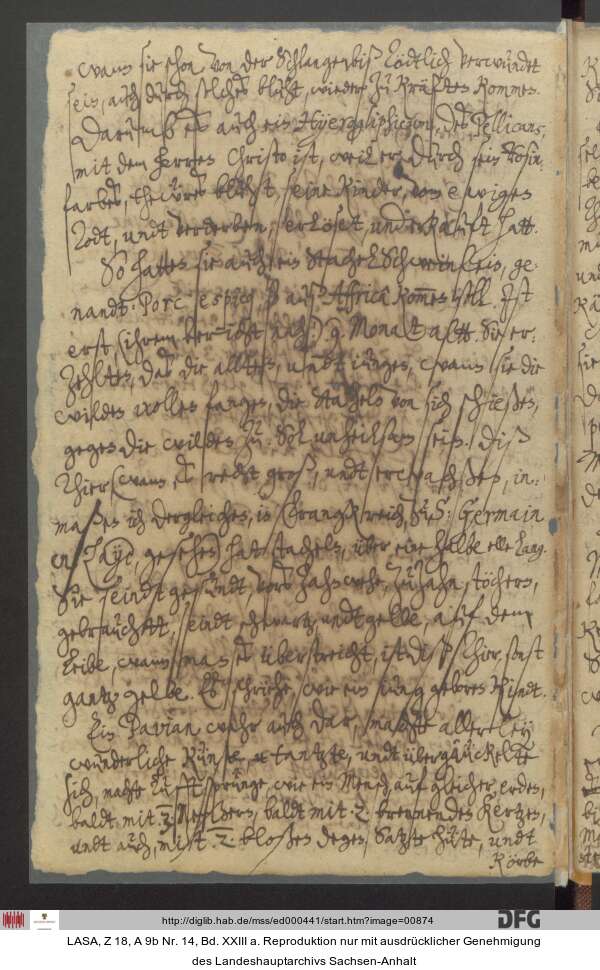 wann sie schon von der Schlangen biß tödtlich verwundet
sein, auch durch solches bluht, wieder zu kräften kommen.
Darumb ist auch ein Hyerogliphicum, des Pellicans,
mit dem herren Christo ist, weil er durch sein rosin,,
farbes, thewres bluht, seine kinder, vom ewigen
Todt, undt verderben, erlöset, undt erkaufft hatt.
So hatten sie auch ein Stachel Schweinlein, ge,,
nandt: Porc espicq so auß Africa kommen soll. Ist
erst (ihrem bericht nach) 9 Monat altt. Sie er,,
zehlten, das die allten, undt iungen, wann sie die
wilden wollen fangen, die stacheln von sich schießen,
gegen die wilden zu. Soll unheilsam sein. Diß
Thier (wann es recht groß, undt erwachßen, in,,
maßen ich dergleichen, in Franckreich, zu S: Germain
en Laye, gesehen) hatt stacheln, über eine halbe elle lang.
Sie seindt gesundt, vors zahnwehe, zu zahnstöchern,
gebrauchett, seindt schwartz undt gelbe, auf dem
leibe, wann man es überstreicht, ist diß thier sonst
gantz gelbe. Es schrihe, wie ein iung gebornes Kindt.
Ein Pavian wahr auch dar, machte allerley
wunderliche Künste, tantzte, undt übergäuckelte
sich, macht luftsprünge, wie ein Mensch, auf gleicher erden,
baldt mit 2 Meßern, baldt mit 2 brennenden Kertzen,
undt auch, mitt 2 bloßen degen, Satzte hüte, undt
Körbe
http://diglib.hab.de/mss/ed000441/start.htm?image=00874
DFG
LASA, Z 18, A 9b Nr. 14, Bd. XXIII a. Reproduktion nur mit ausdrücklicher Genehmigung
des Landeshauptarchivs Sachsen-Anhalt